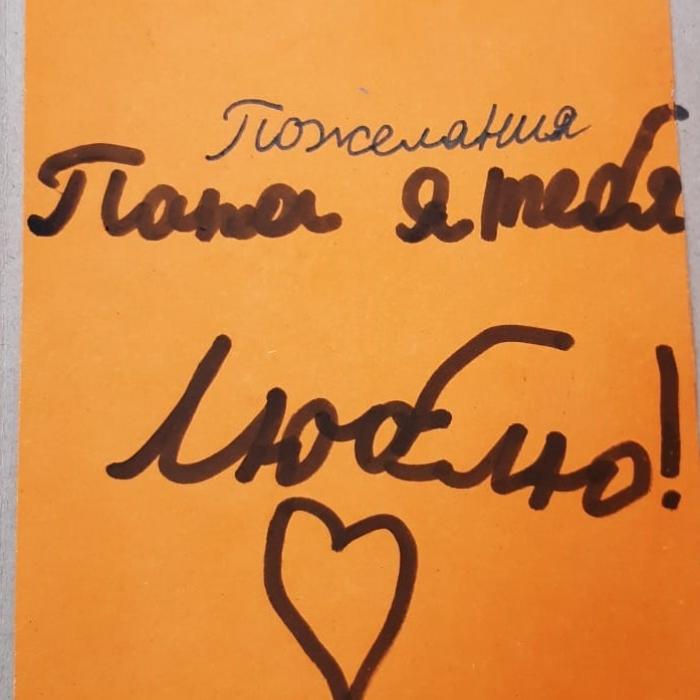 Пожелания
Папа я тебя
люблю!